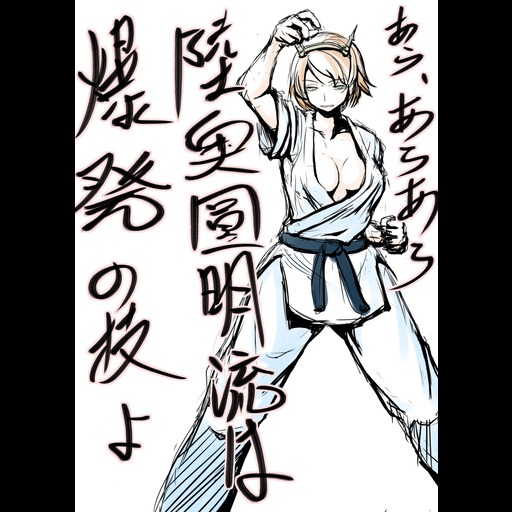 あら、あらあら
陸奥圓明流は
爆発の技よ